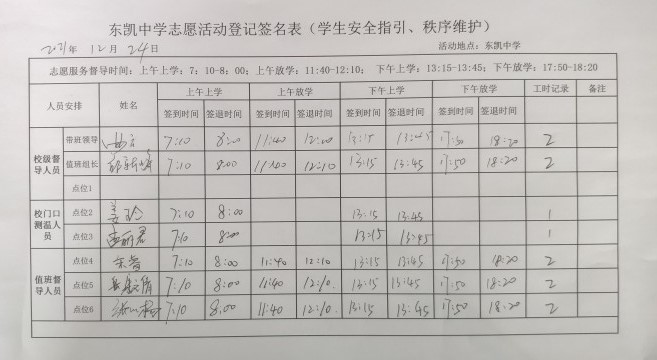 东凯中学志愿活动登记签名表（学生安全指引、秩序维护）
2021年12月24日 活动地点：东凯中学
志愿服务督导时间：上午上学：7：10-8：00；上午放学：11:40-12:10； 下午上学：13:15-13:45；下午放学：17:50-18:20
人员安排 姓名 上午上学 上午放学 下午上学 下午放学 工时记录 备注
签到时间 签退时间 签到时间 签退时间 签到时间 签退时间 签到时间 签退时间
校级督导人员 带班领导 7:10 8:00 11:40 12:10 13:15 13:45 17:50 18:20 2
值班组长 7:10 8:00 11:40 12:10 13:15 13:45 17:50 18:20 2
点位1
校门口测温人员 点位2 7:10 8:00 13:15 13:45 1
点位3 7:10 8:00 13:15 13:45 1
值班督导人员 点位4 7:10 8:00 11:40 12:10 13:15 13:45 17:50 18:20 2
点位5 7:10 8:00 11:40 12:10. 13:15 13:45 17:50 18:20 2
点位6 7:10 8:00 11:40 12:10. 13:15 13:45 17:50 18:20 2